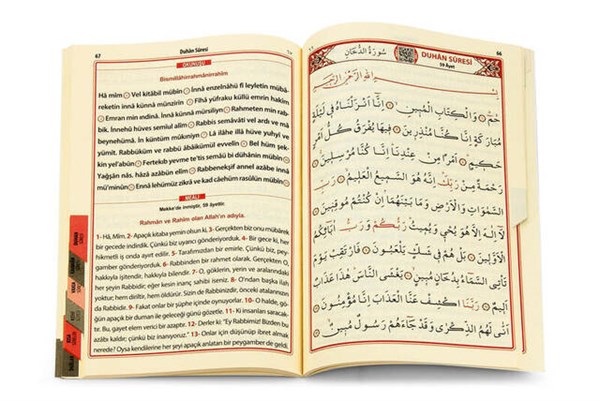 67 Duhân Sûresi
OKUNUŞU
Bismillâhirrahmânirrahîm
Hâ mîm Vel kitâbil mübîn İnnâ enzelnâhü fî leyletin mübâ-
reketin innâ künnâ münzirîn Fîhâ yüfraku küllü emrin hakîm
Emran min ındinâ. İnnâ künnâ mürsiliyn Rahmeten min rab-
bik. İnnehû hüves semîul alîm Rabbis semâvâti vel ardı ve mâ
beynehümâ. İn küntüm mûkıniyn Lâ ilâhe illâ hüve yuhyî ve
yümît. Rabbüküm ve rabbü âbâikümül evvelîn Bel hüm şek-
kin yel'abûn Fertekıb yevme te'tis semâü bi dühânin mübîn
Yağşân nâs. hâzâ azâbün elîm Rabbenekşif annel azâbe innâ
mü'minûn Ennâ lehümüz zikrâ ve kad câehüm rasûlün mübîn
MEALİ
Mekke'de inmiştir. 59 âyettir.
Rahmân ve Rahîm olan Allah'ın adıyla.
1- Hâ, Mîm. 2- Apaçık kitaba yemin olsun ki, 3- Gerçekten biz onu mübârek
bir gecede indirdik. Çünkü biz uyarıcı gönderiyorduk. 4- Bir gece ki, her
hikmetli iş onda ayırt edilir. 5- Tarafımızdan bir emirle. Çünkü biz, pey-
gamber gönderiyorduk. 6- Rabbinden bir rahmet olarak. Gerçekten O,
hakkıyla işitendir, hakkıyla bilendir. 7- O, göklerin, yerin ve aralarındaki
her şeyin Rabbidir; eğer kesin inanç sahibi iseniz. 8- O'ndan başka ilah
yoktur; hem diriltir, hem öldürür. Sizin de Rabbinizdir, önceki atalarınızın
da Rabbidir. 9- Fakat onlar bir şüphe içinde oynuyorlar. 10- O halde, gö-
ğün apaçık bir duman ile geleceği günü gözetle. 11- Ki insanları saracak-
tır. Bu, gayet elem verici bir azaptır. 12- Derler ki: "Ey Rabbimiz! Bizden bu
azâbı kaldır; çünkü biz inanıyoruz." 13- Onlar için düşünüp ibret almak
nerede? Oysa kendilerine her şeyi apaçık anlatan bir peygamber de geldi.
سُورَةُ الدُّخَانِ DUHÂN SÛRESİ 66
59 Âyet
بِسْمِ اللّٰهِ الرَّحْمٰنِ الرَّحِيمِ
حٰمٓ وَالْكِتَابِ الْمُبِينِ اِنَّٓا اَنْزَلْنَاهُ فِي لَيْلَةٍ
مُبَارَكَةٍ اِنَّا كُنَّا مُنْذِرِينَ فِيهَا يُفْرَقُ كُلُّ اَمْرٍ
حَكِيمٍ اَمْرًا مِنْ عِنْدِنَا اِنَّا كُنَّا مُرْسِلِينَ
رَحْمَةً مِنْ رَبِّكَ اِنَّهُ هُوَ السَّمِيعُ الْعَلِيمُ رَبِّ
السَّمٰوَاتِ وَالْاَرْضِ وَمَا بَيْنَهُمَا اِنْ كُنْتُمْ مُوقِنِينَ
لَٓا اِلٰهَ اِلَّا هُوَ يُحْيِي وَيُمِيتُ رَبُّكُمْ وَرَبُّ اٰبَٓائِكُمُ
الْاَوَّلِينَ بَلْ هُمْ فِي شَكٍّ يَلْعَبُونَ فَارْتَقِبْ يَوْمَ
تَأْتِي السَّمَٓاءُ بِدُخَانٍ مُبِينٍ يَغْشَى النَّاسَ هٰذَا عَذَابٌ
اَلِيمٌ رَبَّنَا اكْشِفْ عَنَّا الْعَذَابَ اِنَّا مُؤْمِنُونَ
اَنّٰى لَهُمُ الذِّكْرٰى وَقَدْ جَٓاءَهُمْ رَسُولٌ مُبِينٌ